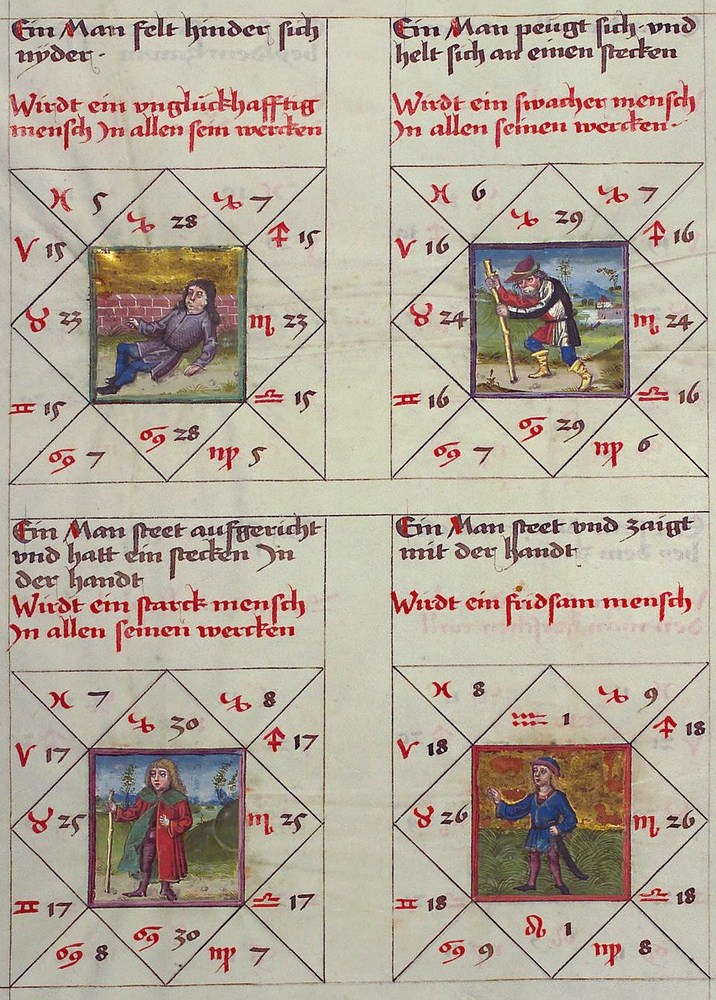 Ein Man felt hinder sich
nyder·
Wirdt ein vnglückhafftig
mensch Jn allen sein wercken
♓ 5
♑ 28
♑ 7
♈ 15
♐ 15
♉ 23
♏ 23
♊ 15
♎ 15
♋ 7
♋ 28
♍ 5
Ein Man peugt sich vnd
helt sich an einen stecken
Wirdt ein swacher mensch
Jn allen seinen wercken·
♓ 6
♑ 29
♑ 7
♈ 16
♐ 16
♉ 24
♏ 24
♊ 16
♎ 16
♋ 7
♋ 29
♍ 6
Ein Man steet aufgericht
vnd hatt ein stecken Jn
der handt
Wirdt ein starck mensch
Jn allen seinen wercken
♓ 7
♑ 30
♑ 8
♈ 17
♐ 17
♉ 25
♏ 25
♊ 17
♎ 17
♋ 8
♋ 30
♍ 7
Ein Man steet vnd zaigt
mit der handt
Wirdt ein fridsam mensch
♓ 8
♒ 1
♑ 9
♈ 18
♐ 18
♉ 26
♏ 26
♊ 18
♎ 18
♋ 9
♌ 1
♍ 8